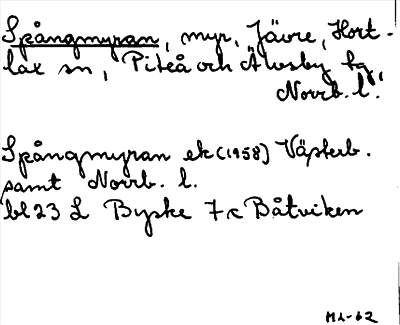 Spångmyran, myr, Jävre, Hort-
lax sn, Piteå och Älvsby tg,
Norrb. l.
Spångmyran ek (1958) Västerb.
samt Norrb. l.
bl 23 L Byske 7 c Båtviken